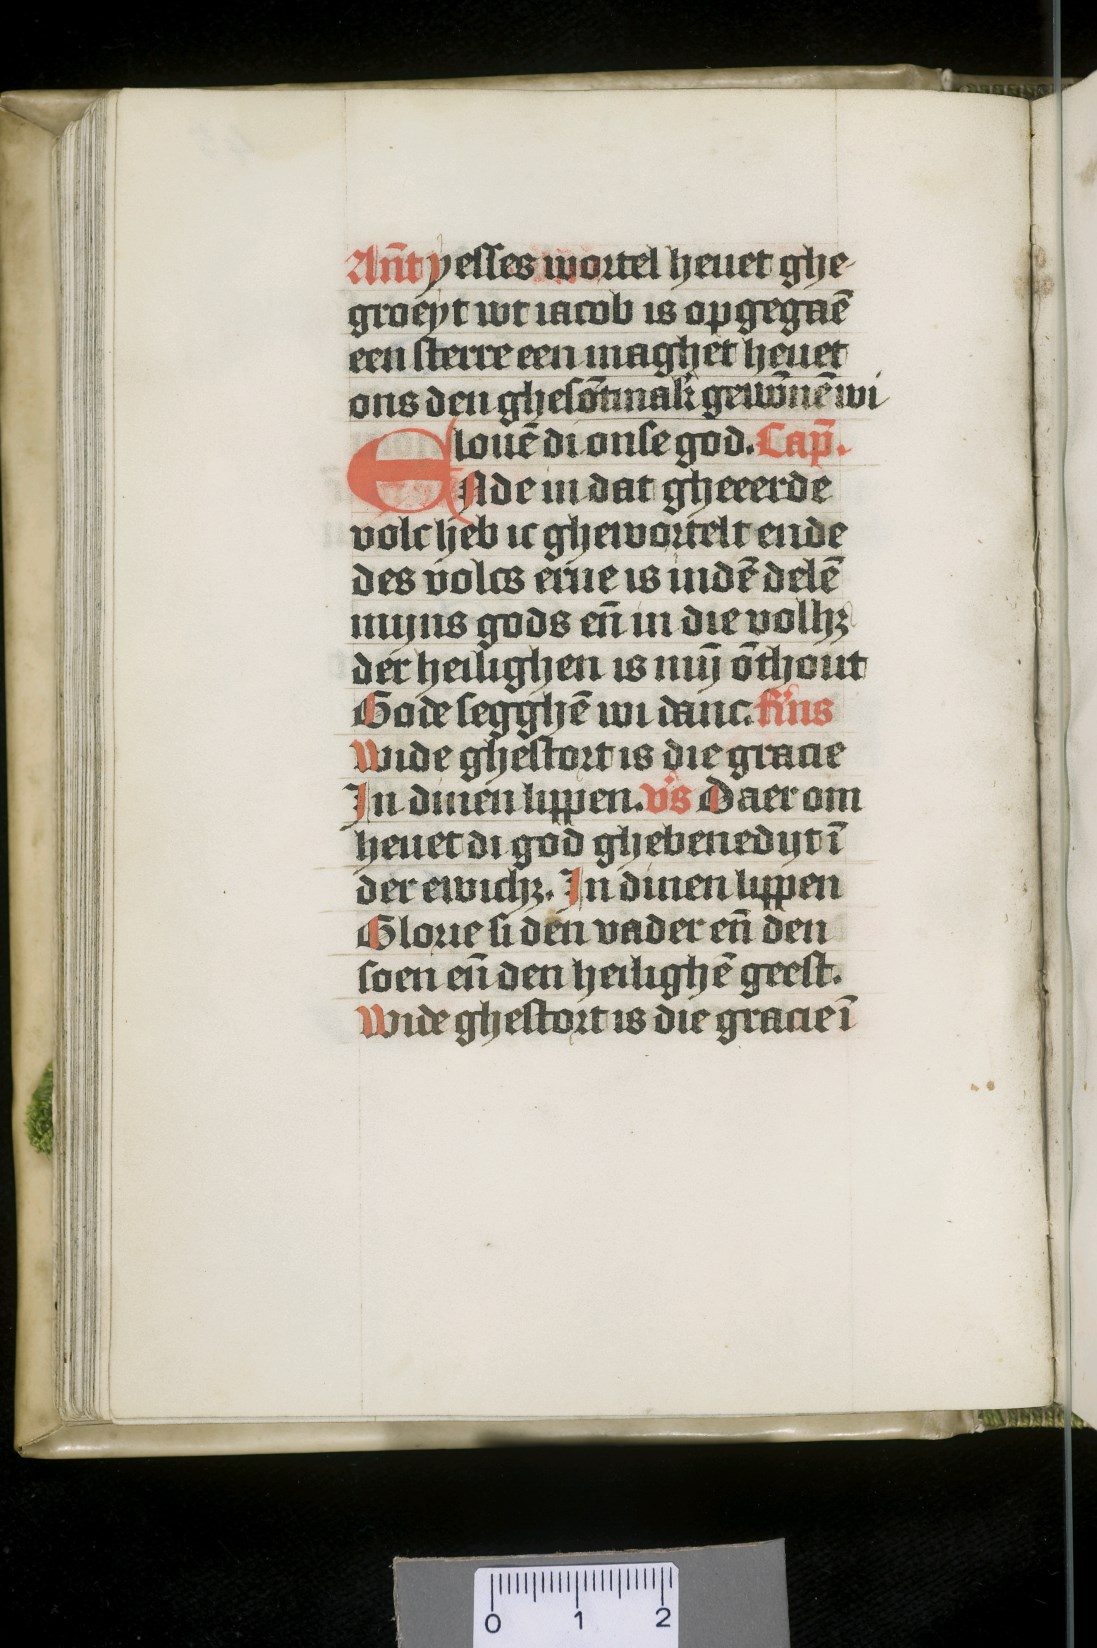 Ant̄ yesses wortel heuet ghe-
groeyt wt iacob is opgegaē
een sterre een maghet heuet
ons den ghesōtmak̄ gewōnē wi
louē di onse god. Cap̄.
ENde in dat gheeerde
volc heb ic ghewortelt ende
des volcs erue is indē delē
mijns gods en̄ in die volhꝫ
der heilighen is mij̄ ōthout
Gode segghē wi danc. R̄ns
Wide ghestort is die gracie
In dinen lippen. v̄s Daer om
heuet di god ghebenedijt ī
der ewichꝫ. In dinen lippen
Glorie si den vader en̄ den
soen en̄ den heilighē geest.
Wide ghestort is die gracie ī
0 1 2